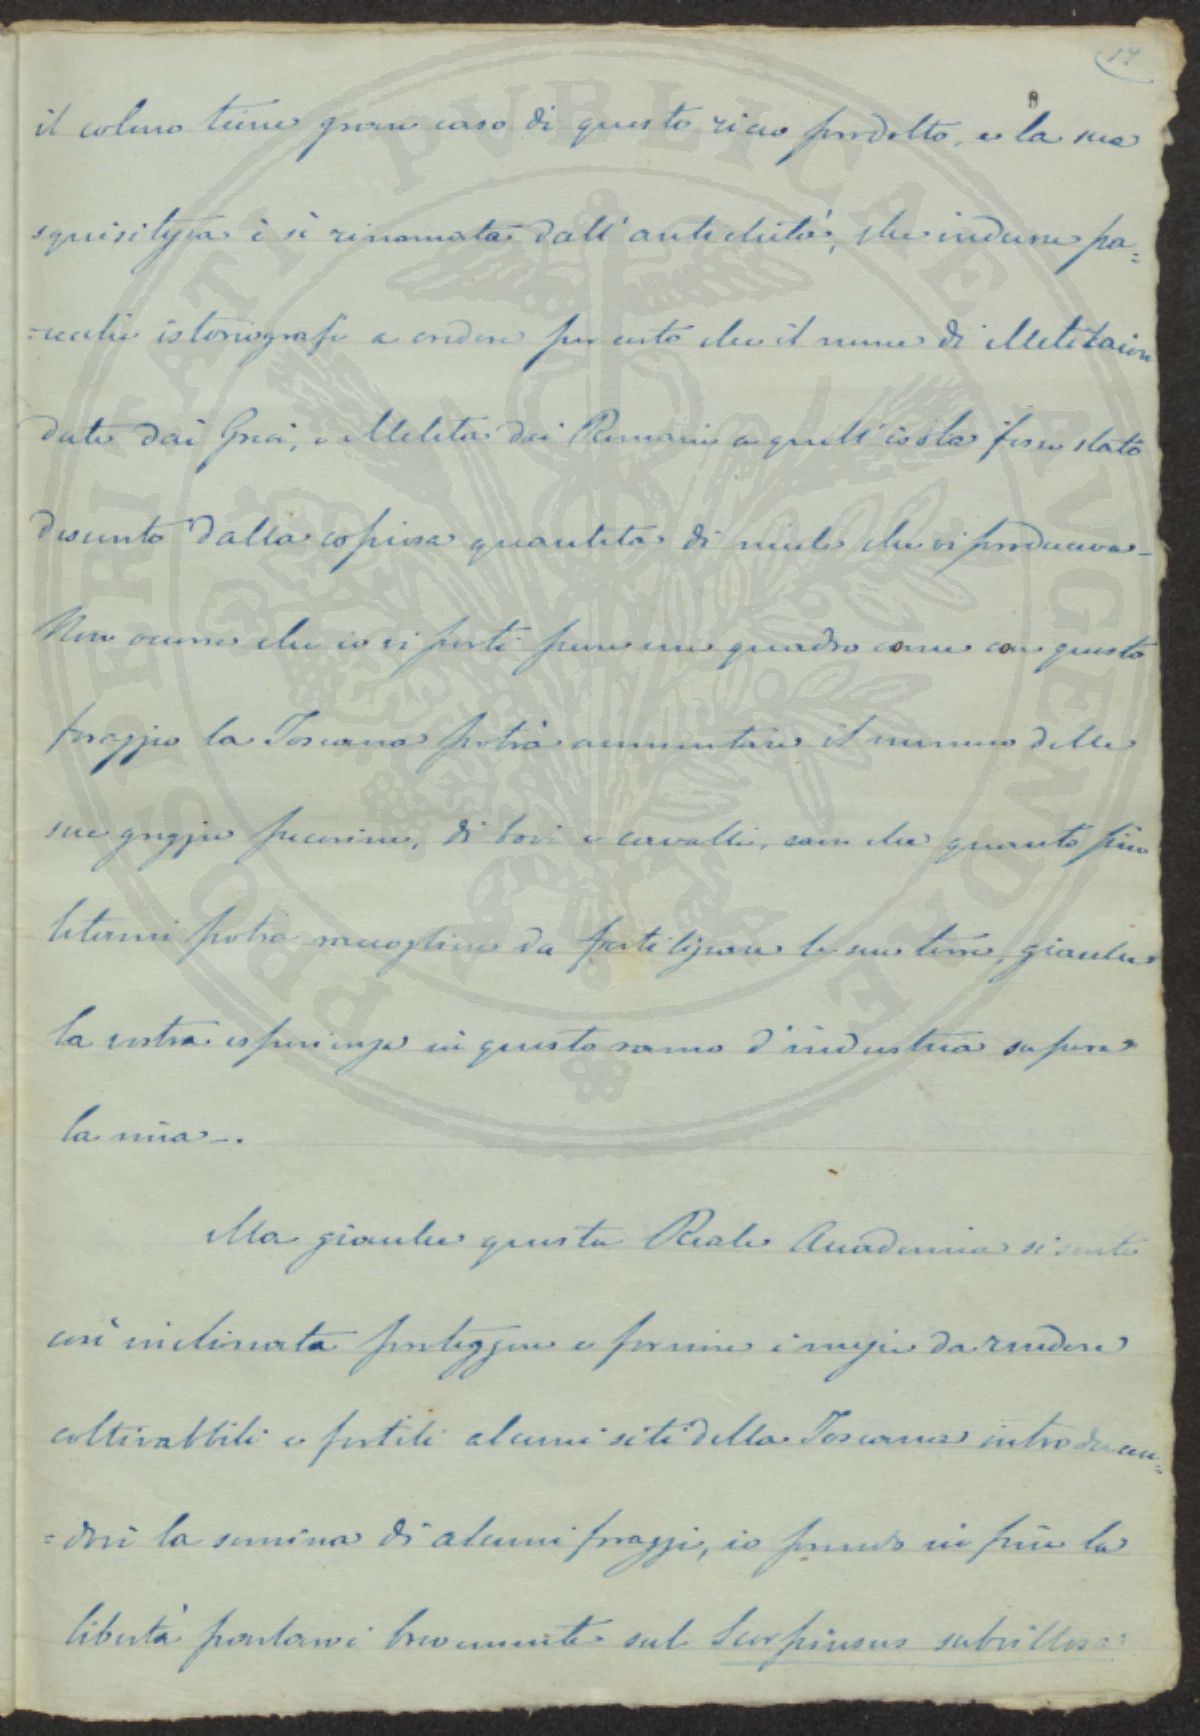 17
il colono tiene gran caso di questo ricco prodotto, e la sua
squisitezza è sì rinomata dall'antichità, che indusse pa=
=recchi istoriografi a credere per certo che il nome di Melitaion
dato dai Greci, e Melita dai Romani a quell'isola fosse stato
desunto dalla copiosa quantità di miele che vi produceva_
Non occorre che io vi porti pure un quadro come con questo
foraggio la Toscana potrà aumentare il numero delle
sue greggie pecorine, di bovi e cavalli, com che quanto più
letami potrà raccogliere da fertilizzare le sue terre, gianche
la vostra esperienza in questo ramo d'industria supera
la mia_.
Ma gianche questa Reale Accademia si sente
così inclinata proteggere e fornire i mezzi da rendere
coltivabbili e fertili alcuni siti della Toscana introducen=
=dovi la semina di alcuni foraggi, io prendo in fine la
libertà parlarvi brevemente sul Scorpiurus subvillosa
PROSPERITATI PUBLICAE AVGENDAE